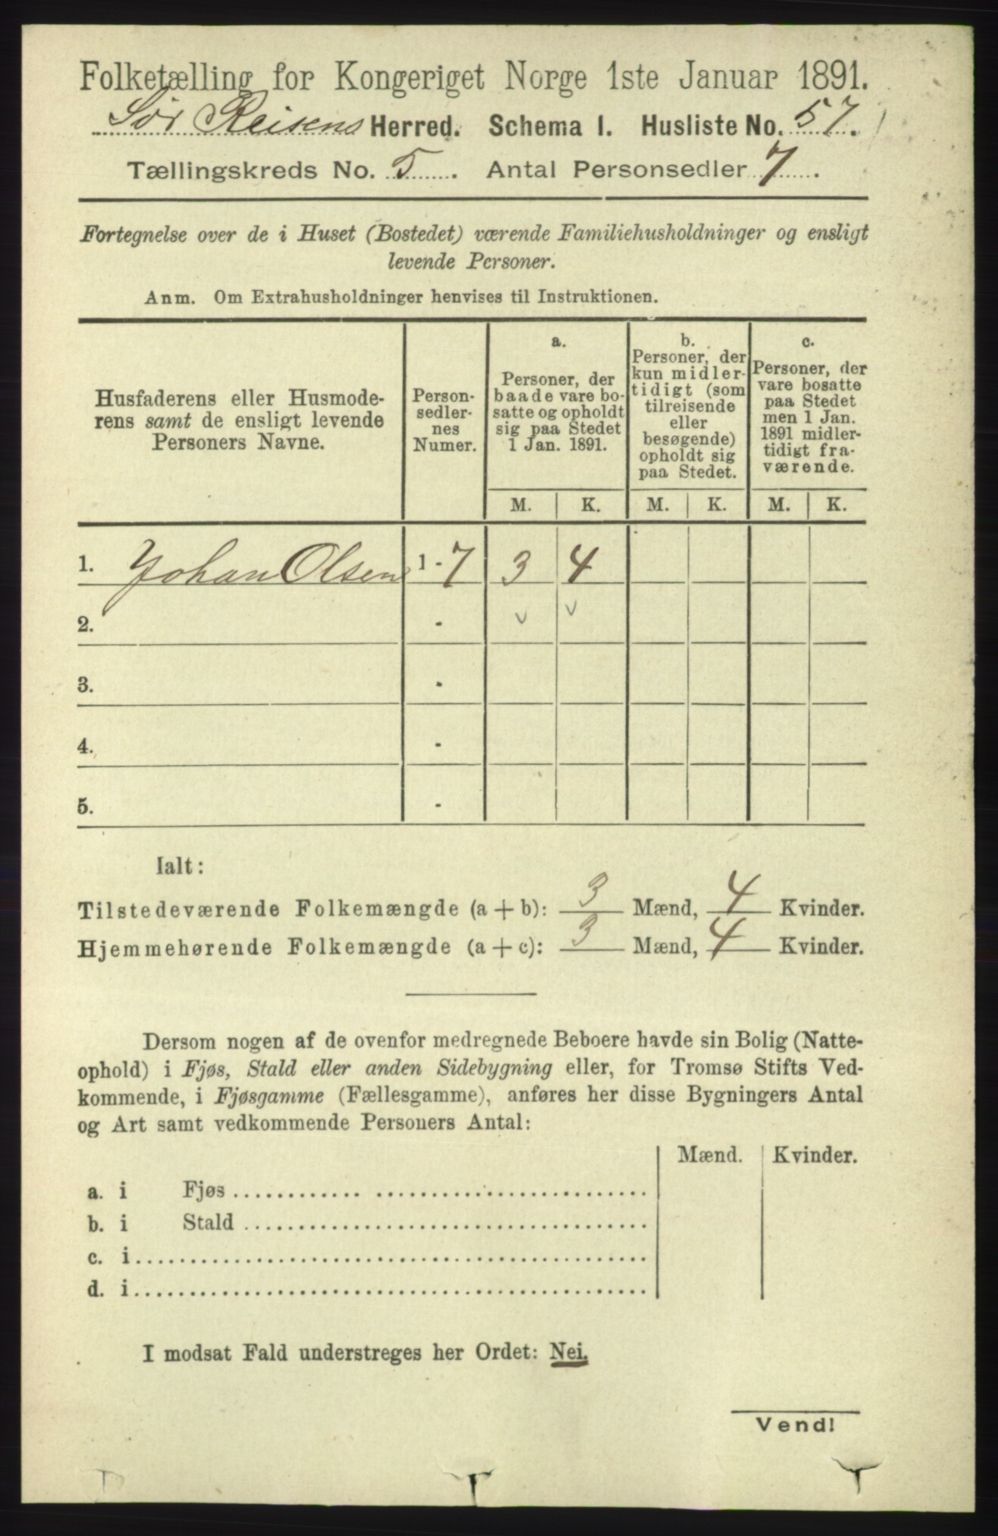 Folketælling for Kongeriget Norge 1ste Januar 1891.
Sør Reisens Herred. Schema I. Husliste No. 57.
Tællingskreds No. 5. Antal Personsedler 7.
Fortegnelse over de i Huset (Bostedet) værende Familiehusholdninger og ensligt
levende Personer.
Anm. Om Extrahusholdninger henvises til Instruktionen.
Husfaderens eller Husmode-
rens samt de ensligt levende
Personers Navne.
Person-
sedler-
nes
Numer.
a.
Personer, der
baade vare bo-
satte og opholdt
sig paa Stedet
1 Jan. 1891.
b.
Personer, der
kun midler-
tidigt (som
tilreisende
eller
besøgende)
opholdt sig
paa Stedet.
c.
Personer, der
vare bosatte
paa Stedet
men 1 Jan.
1891 midler-
tidigt fra-
værende.
M. K. M. K. M. K.
1. Johan Olsen 1-7 3 4
2. - v v
3. -
4. -
5. -
Ialt:
Tilstedeværende Folkemængde (a + b): 3 Mænd, 4 Kvinder.
Hjemmehørende Folkemængde (a + c): 3 Mænd, 4 Kvinder.
Dersom nogen af de ovenfor medregnede Beboere havde sin Bolig (Natte-
ophold) i Fjøs, Stald eller anden Sidebygning eller, for Tromsø Stifts Ved-
kommende, i Fjøsgamme (Fællesgamme), anføres her disse Bygningers Antal
og Art samt vedkommende Personers Antal:
Mænd. Kvinder.
a. i Fjøs
b. i Stald
c. i
d. i
I modsat Fald understreges her Ordet: Nei.
Vend!